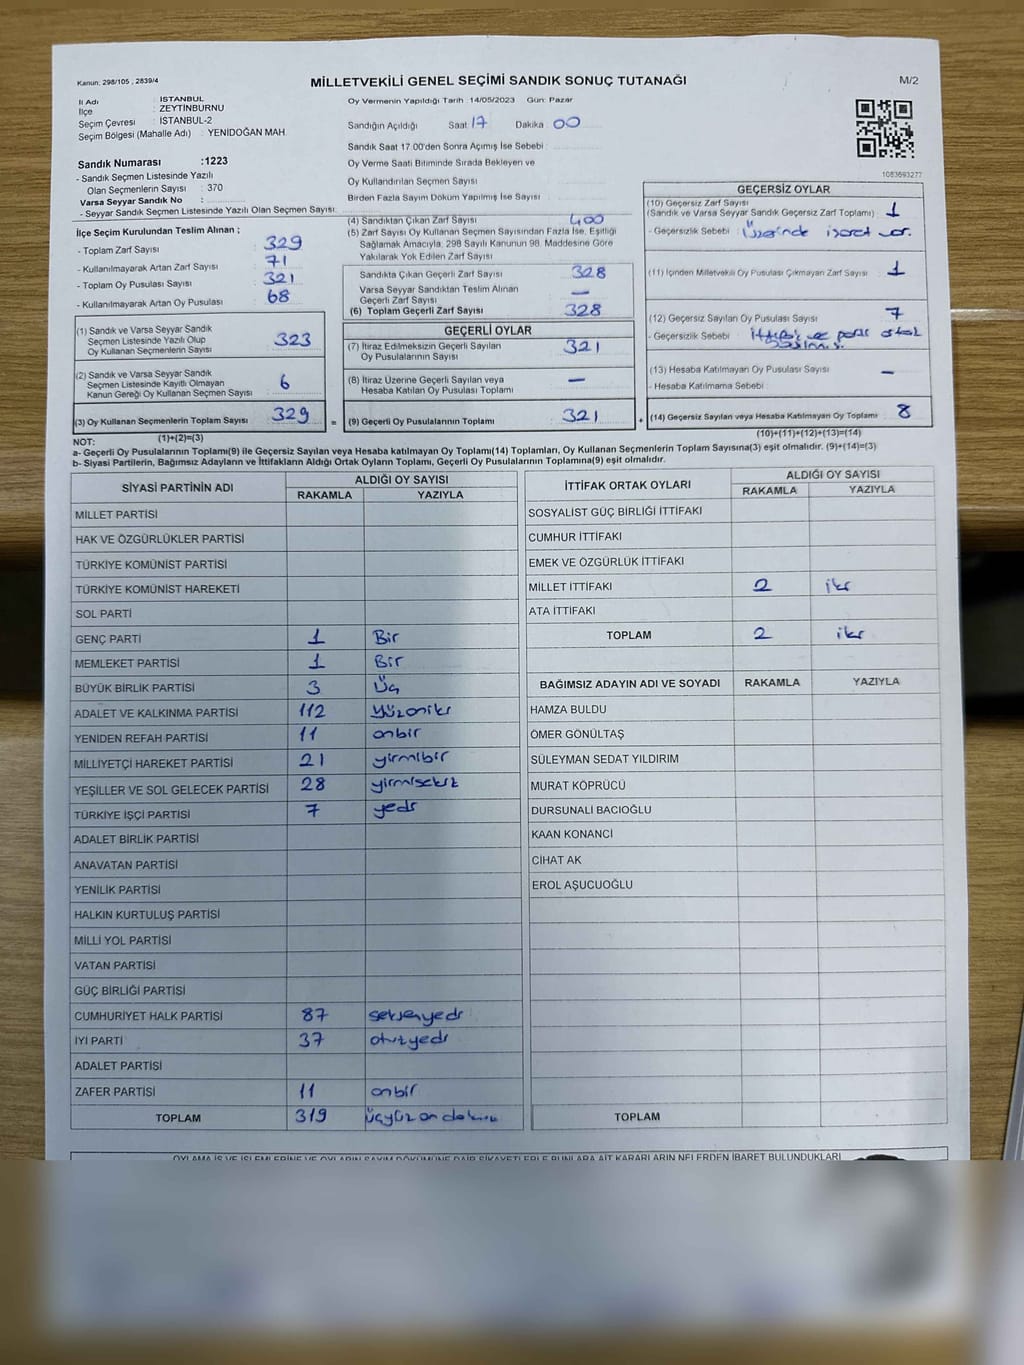 Kanun: 298/105 , 2839/4
MİLLETVEKİLİ GENEL SEÇİMİ SANDIK SONUÇ TUTANAĞI
M/2
İl Adı : İSTANBUL
İlçe : ZEYTİNBURNU
Seçim Çevresi : İSTANBUL-2
Seçim Bölgesi (Mahalle Adı) : YENİDOĞAN MAH.
Sandık Numarası :1223
- Sandık Seçmen Listesinde Yazılı
Olan Seçmenlerin Sayısı : 370
Varsa Seyyar Sandık No :
- Seyyar Sandık Seçmen Listesinde Yazılı Olan Seçmen Sayısı:
Oy Vermenin Yapıldığı Tarih :14/05/2023 Gün: Pazar
Sandığın Açıldığı Saat 17 Dakika 00
Sandık Saat 17.00'den Sonra Açımış İse Sebebi :
Oy Verme Saati Bitiminde Sırada Bekleyen ve
Oy Kullandırılan Seçmen Sayısı
Birden Fazla Sayım Döküm Yapılmış İse Sayısı :
1083693277
İlçe Seçim Kurulundan Teslim Alınan ;
- Toplam Zarf Sayısı 329
- Kullanılmayarak Artan Zarf Sayısı 71
- Toplam Oy Pusulası Sayısı 321
- Kullanılmayarak Artan Oy Pusulası 68
(1) Sandık ve Varsa Seyyar Sandık
Seçmen Listesinde Yazılı Olup
Oy Kullanan Seçmenlerin Sayısı 323
(2) Sandık ve Varsa Seyyar Sandık
Seçmen Listesinde Kayıtlı Olmayan
Kanun Gereği Oy Kullanan Seçmen Sayısı 6
(3) Oy Kullanan Seçmenlerin Toplam Sayısı 329 =
(1)+(2)=(3)
(4) Sandıktan Çıkan Zarf Sayısı 400
(5) Zarf Sayısı Oy Kullanan Seçmen Sayısından Fazla İse, Eşitliği
Sağlamak Amacıyla, 298 Sayılı Kanunun 98. Maddesine Göre
Yakılarak Yok Edilen Zarf Sayısı
Sandıkta Çıkan Geçerli Zarf Sayısı 328
Varsa Seyyar Sandıktan Teslim Alınan
Geçerli Zarf Sayısı —
(6) Toplam Geçerli Zarf Sayısı 328
GEÇERLİ OYLAR
(7) İtiraz Edilmeksizin Geçerli Sayılan
Oy Pusulalarının Sayısı 321
(8) İtiraz Üzerine Geçerli Sayılan veya
Hesaba Katılan Oy Pusulası Toplamı —
(9) Geçerli Oy Pusulalarının Toplamı 321 +
GEÇERSİZ OYLAR
(10) Geçersiz Zarf Sayısı
(Sandık ve Varsa Seyyar Sandık Geçersiz Zarf Toplamı) 1
- Geçersizlik Sebebi : Üzerinde işaret var.
(11) İçinden Milletvekili Oy Pusulası Çıkmayan Zarf Sayısı 1
(12) Geçersiz Sayılan Oy Pusulası Sayısı 7
- Geçersizlik Sebebi ve
(13) Hesaba Katılmayan Oy Pusulası Sayısı —
- Hesaba Katılmama Sebebi
(14) Geçersiz Sayılan veya Hesaba Katılmayan Oy Toplamı 8
(10)+(11)+(12)+(13)=(14)
NOT:
a- Geçerli Oy Pusulalarının Toplamı(9) ile Geçersiz Sayılan veya Hesaba katılmayan Oy Toplamı(14) Toplamları, Oy Kullanan Seçmenlerin Toplam Sayısına(3) eşit olmalıdır. (9)+(14)=(3)
b- Siyasi Partilerin, Bağımsız Adayların ve İttifakların Aldığı Ortak Oyların Toplamı, Geçerli Oy Pusulalarının Toplamına(9) eşit olmalıdır.
SİYASİ PARTİNİN ADI ALDIĞI OY SAYISI
RAKAMLA YAZIYLA
MİLLET PARTİSİ
HAK VE ÖZGÜRLÜKLER PARTİSİ
TÜRKİYE KOMÜNİST PARTİSİ
TÜRKİYE KOMÜNİST HAREKETİ
SOL PARTİ
GENÇ PARTİ 1 Bir
MEMLEKET PARTİSİ 1 Bir
BÜYÜK BİRLİK PARTİSİ 3 Üç
ADALET VE KALKINMA PARTİSİ 112 yüzoniki
YENİDEN REFAH PARTİSİ 11 onbir
MİLLİYETÇİ HAREKET PARTİSİ 21 yirmibir
YEŞİLLER VE SOL GELECEK PARTİSİ 28 yirmisekiz
TÜRKİYE İŞÇİ PARTİSİ 7 yedi
ADALET BİRLİK PARTİSİ
ANAVATAN PARTİSİ
YENİLİK PARTİSİ
HALKIN KURTULUŞ PARTİSİ
MİLLİ YOL PARTİSİ
VATAN PARTİSİ
GÜÇ BİRLİĞİ PARTİSİ
CUMHURİYET HALK PARTİSİ 87 seksenyedi
İYİ PARTİ 37 otuzyedi
ADALET PARTİSİ
ZAFER PARTİSİ 11 onbir
TOPLAM 319 üçyüz on dokuz
İTTİFAK ORTAK OYLARI ALDIĞI OY SAYISI
RAKAMLA YAZIYLA
SOSYALİST GÜÇ BİRLİĞİ İTTİFAKI
CUMHUR İTTİFAKI
EMEK VE ÖZGÜRLÜK İTTİFAKI
MİLLET İTTİFAKI 2 iki
ATA İTTİFAKI
TOPLAM 2 iki
BAĞIMSIZ ADAYIN ADI VE SOYADI RAKAMLA YAZIYLA
HAMZA BULDU
ÖMER GÖNÜLTAŞ
SÜLEYMAN SEDAT YILDIRIM
MURAT KÖPRÜCÜ
DURSUNALİ BACIOĞLU
KAAN KONANCİ
CİHAT AK
EROL AŞUCUOĞLU
TOPLAM
OYLAMA İŞ VE İŞLEMLERİNE VE OYLARIN SAYIM DÖKÜMÜNE DAİR ŞİKAYETLERLE BUNLARA AİT KARARLARIN NELERDEN İBARET BULUNDUKLARI